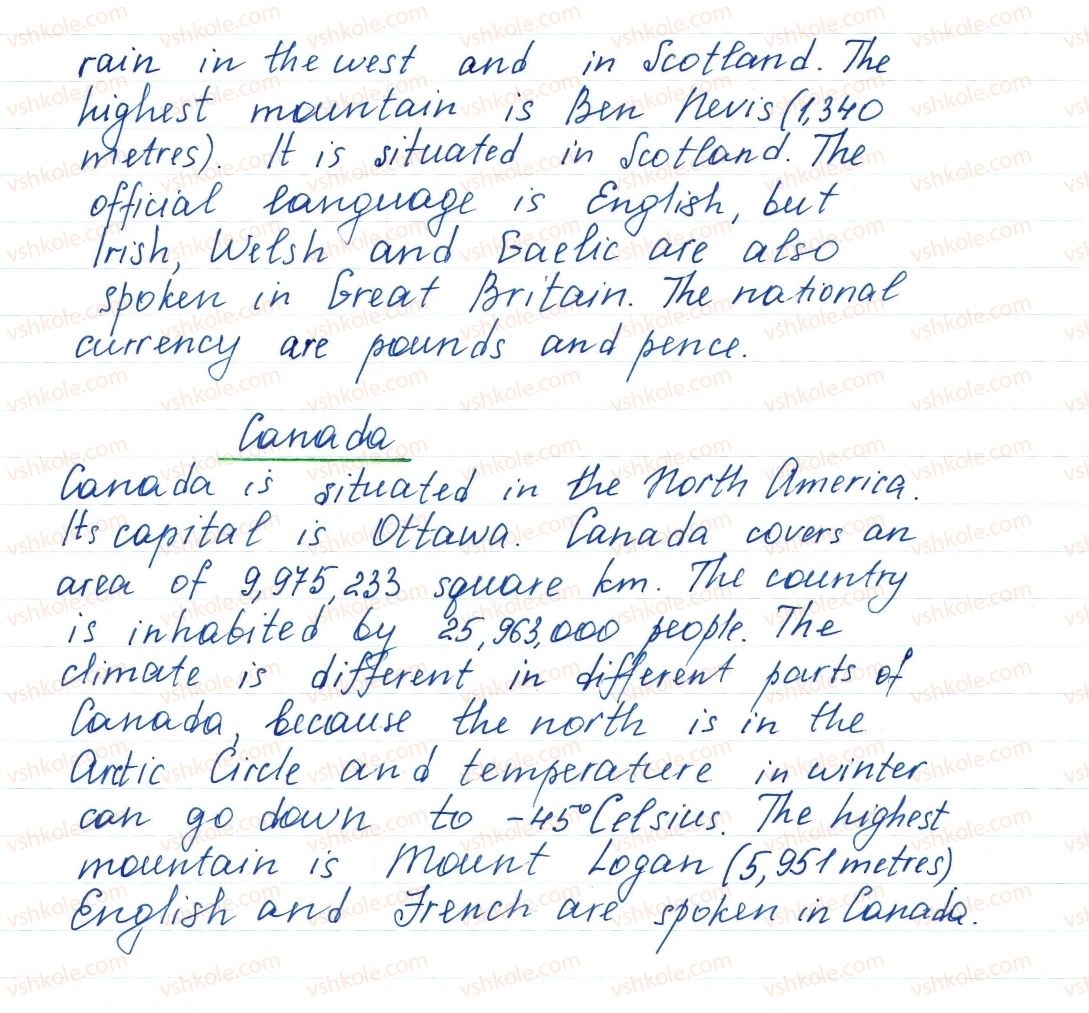 rain in the west and in Scotland. The
highest mountain is Ben Nevis (1,340
metres). It is situated in Scotland. The
official language is English, but
Irish, Welsh and Gaelic are also
spoken in Great Britain. The national
currency are pounds and pence.
Canada
Canada is situated in the North America.
Its capital is Ottawa. Canada covers an
area of 9,975,233 square km. The country
is inhabited by 25,963,000 people. The
climate is different in different parts of
Canada, because the north is in the
Arctic Circle and temperature in winter
can go down to -45° Celsius. The highest
mountain is Mount Logan (5,951 metres)
English and French are spoken in Canada.
vshkole.com